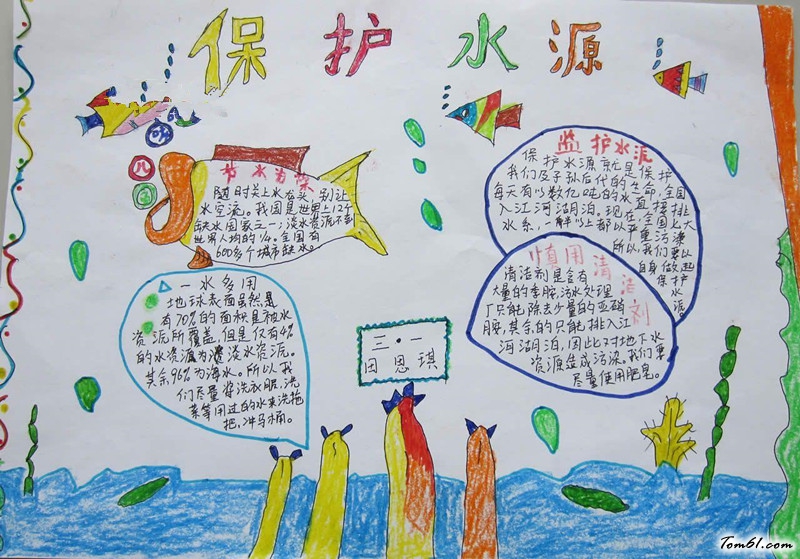 保护水源
节水为荣
随时关上水龙头,别让
水空流。我国是世界上12个
缺水国家之一;淡水资源不到
世界人均的1/4。全国有
600多个城市缺水。
一水多用
地球表面虽然是
有70%的面积是被水
资源所覆盖,但是仅有4%
的水资源为淡水资源。
其余96%为海水。所以我
们尽量将洗衣服,洗
菜等用过的水来洗拖
把,冲马桶。
三·一
田恩琪
监护水源
保护水源就是保护
我们及子孙后代的生命,全国
每天有以数亿吨的水直接排
入江河湖泊。现在,全国七大
水系,一半以上都以严重污染
所以,我们要以
自身做起
保护水
源。
慎用清洁剂
清洁剂是含有
大量的季胺,污水处理
厂只能除去少量的亚硝
胺,其余的只能排入江
河湖泊,因此对地下水
资源造成污染。我们要
尽量使用肥皂。
Tom61.com